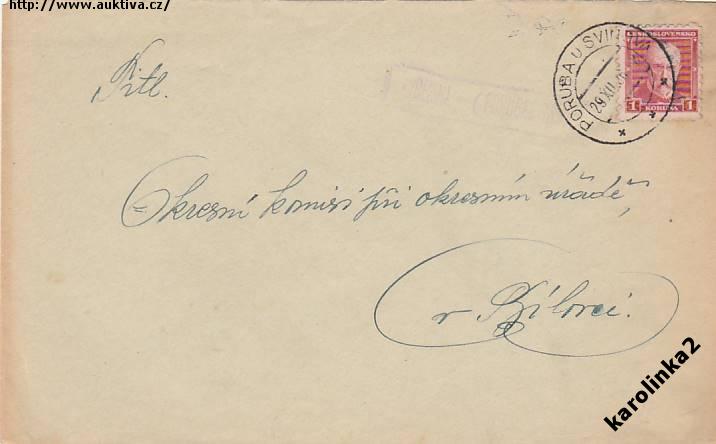 http://www.auktiva.cz/
Titl.
Okresní komisi při okresním úřadě,
v Bílovci.
ČESKOSLOVENSKO
1 KORUNA 1
PORUBA U SVINOVA
29.XII.
karolinka2